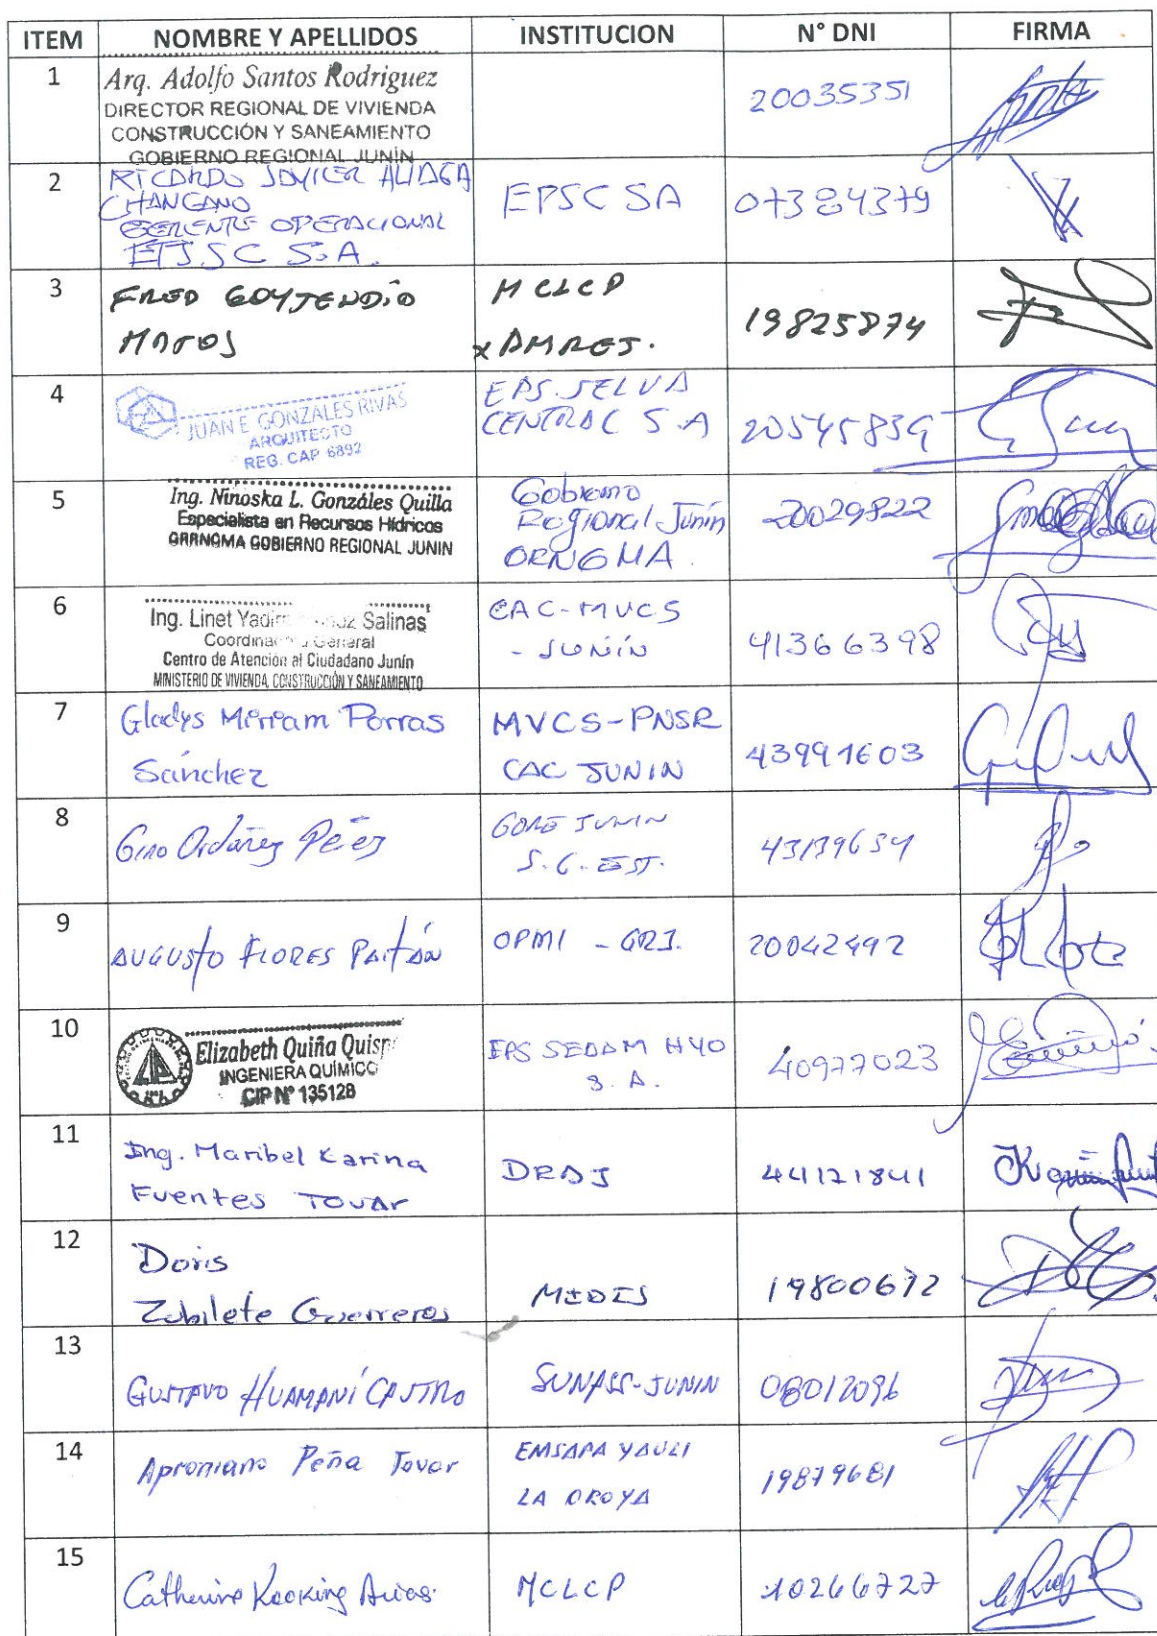 ITEM NOMBRE Y APELLIDOS INSTITUCION N° DNI FIRMA
1
Arq. Adolfo Santos Rodriguez
DIRECTOR REGIONAL DE VIVIENDA
CONSTRUCCIÓN Y SANEAMIENTO
GOBIERNO REGIONAL JUNÍN
20035351
2
RICARDO JAVIER ALIAGA
CHANGANO
GERENTE OPERACIONAL
EPSSC S.A.
EPSC SA
07384379
3
FRED GOYTENDIO
MATOS
MCLCP
x AMRES.
19825874
4
JUAN E. GONZALES RIVAS
ARQUITECTO
REG. CAP 6892
EPS. SELVA
CENTRAL S.A
20545839
5
Ing. Ninoska L. Gonzáles Quilla
Especialista en Recursos Hídricos
GRRNGMA GOBIERNO REGIONAL JUNIN
Gobierno
Regional Junín
20029822
6
Ing. Linet Salinas
General
Centro de Atención al Ciudadano Junín
MINISTERIO DE VIVIENDA, CONSTRUCCIÓN Y SANEAMIENTO
CAC-MVCS
- JUNÍN
41366398
7
Gladys Miriam Porras
Sánchez
MVCS-PNSR
CAC JUNIN
43991603
8
Gino Ordoñez Pérez
GORE JUNIN
S.G. EST.
43139654
9
AUGUSTO FLORES PAITÁN
OPMI - GRJ.
20042492
10
Elizabeth Quiña Quispe
INGENIERA QUÍMICO
CIP Nº 135128
EPS SEDAM HYO
S. A.
40977023
11
Ing. Maribel Karina
Fuentes TOVAR
DRAJ
44121841
12
Doris
Zubilete Guerreros
MIDIS
19800672
13
GUSTAVO HUAMANÍ CASTRO
SUNASS-JUNIN
08012096
14
Aproniano Peña Tovar
EMSAPA YAULI
LA OROYA
19879681
15
Catherine Arias
MCLCP
10266727